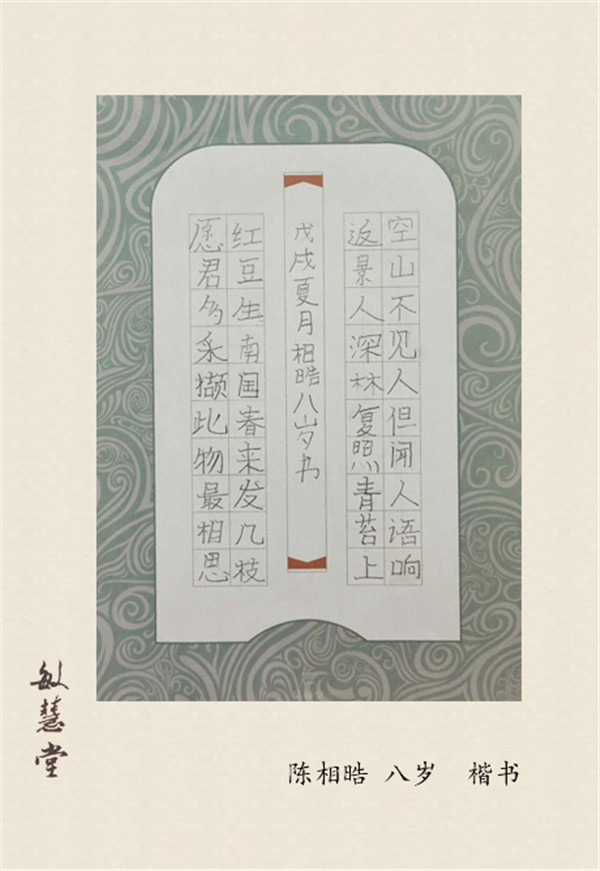 空山不见人但闻人语响
返景人深林复照青苔上
戊戌夏月相晧八岁书
红豆生南国春来发几枝
愿君多采撷此物最相思
敏慧堂
陈相晧 八岁 楷书